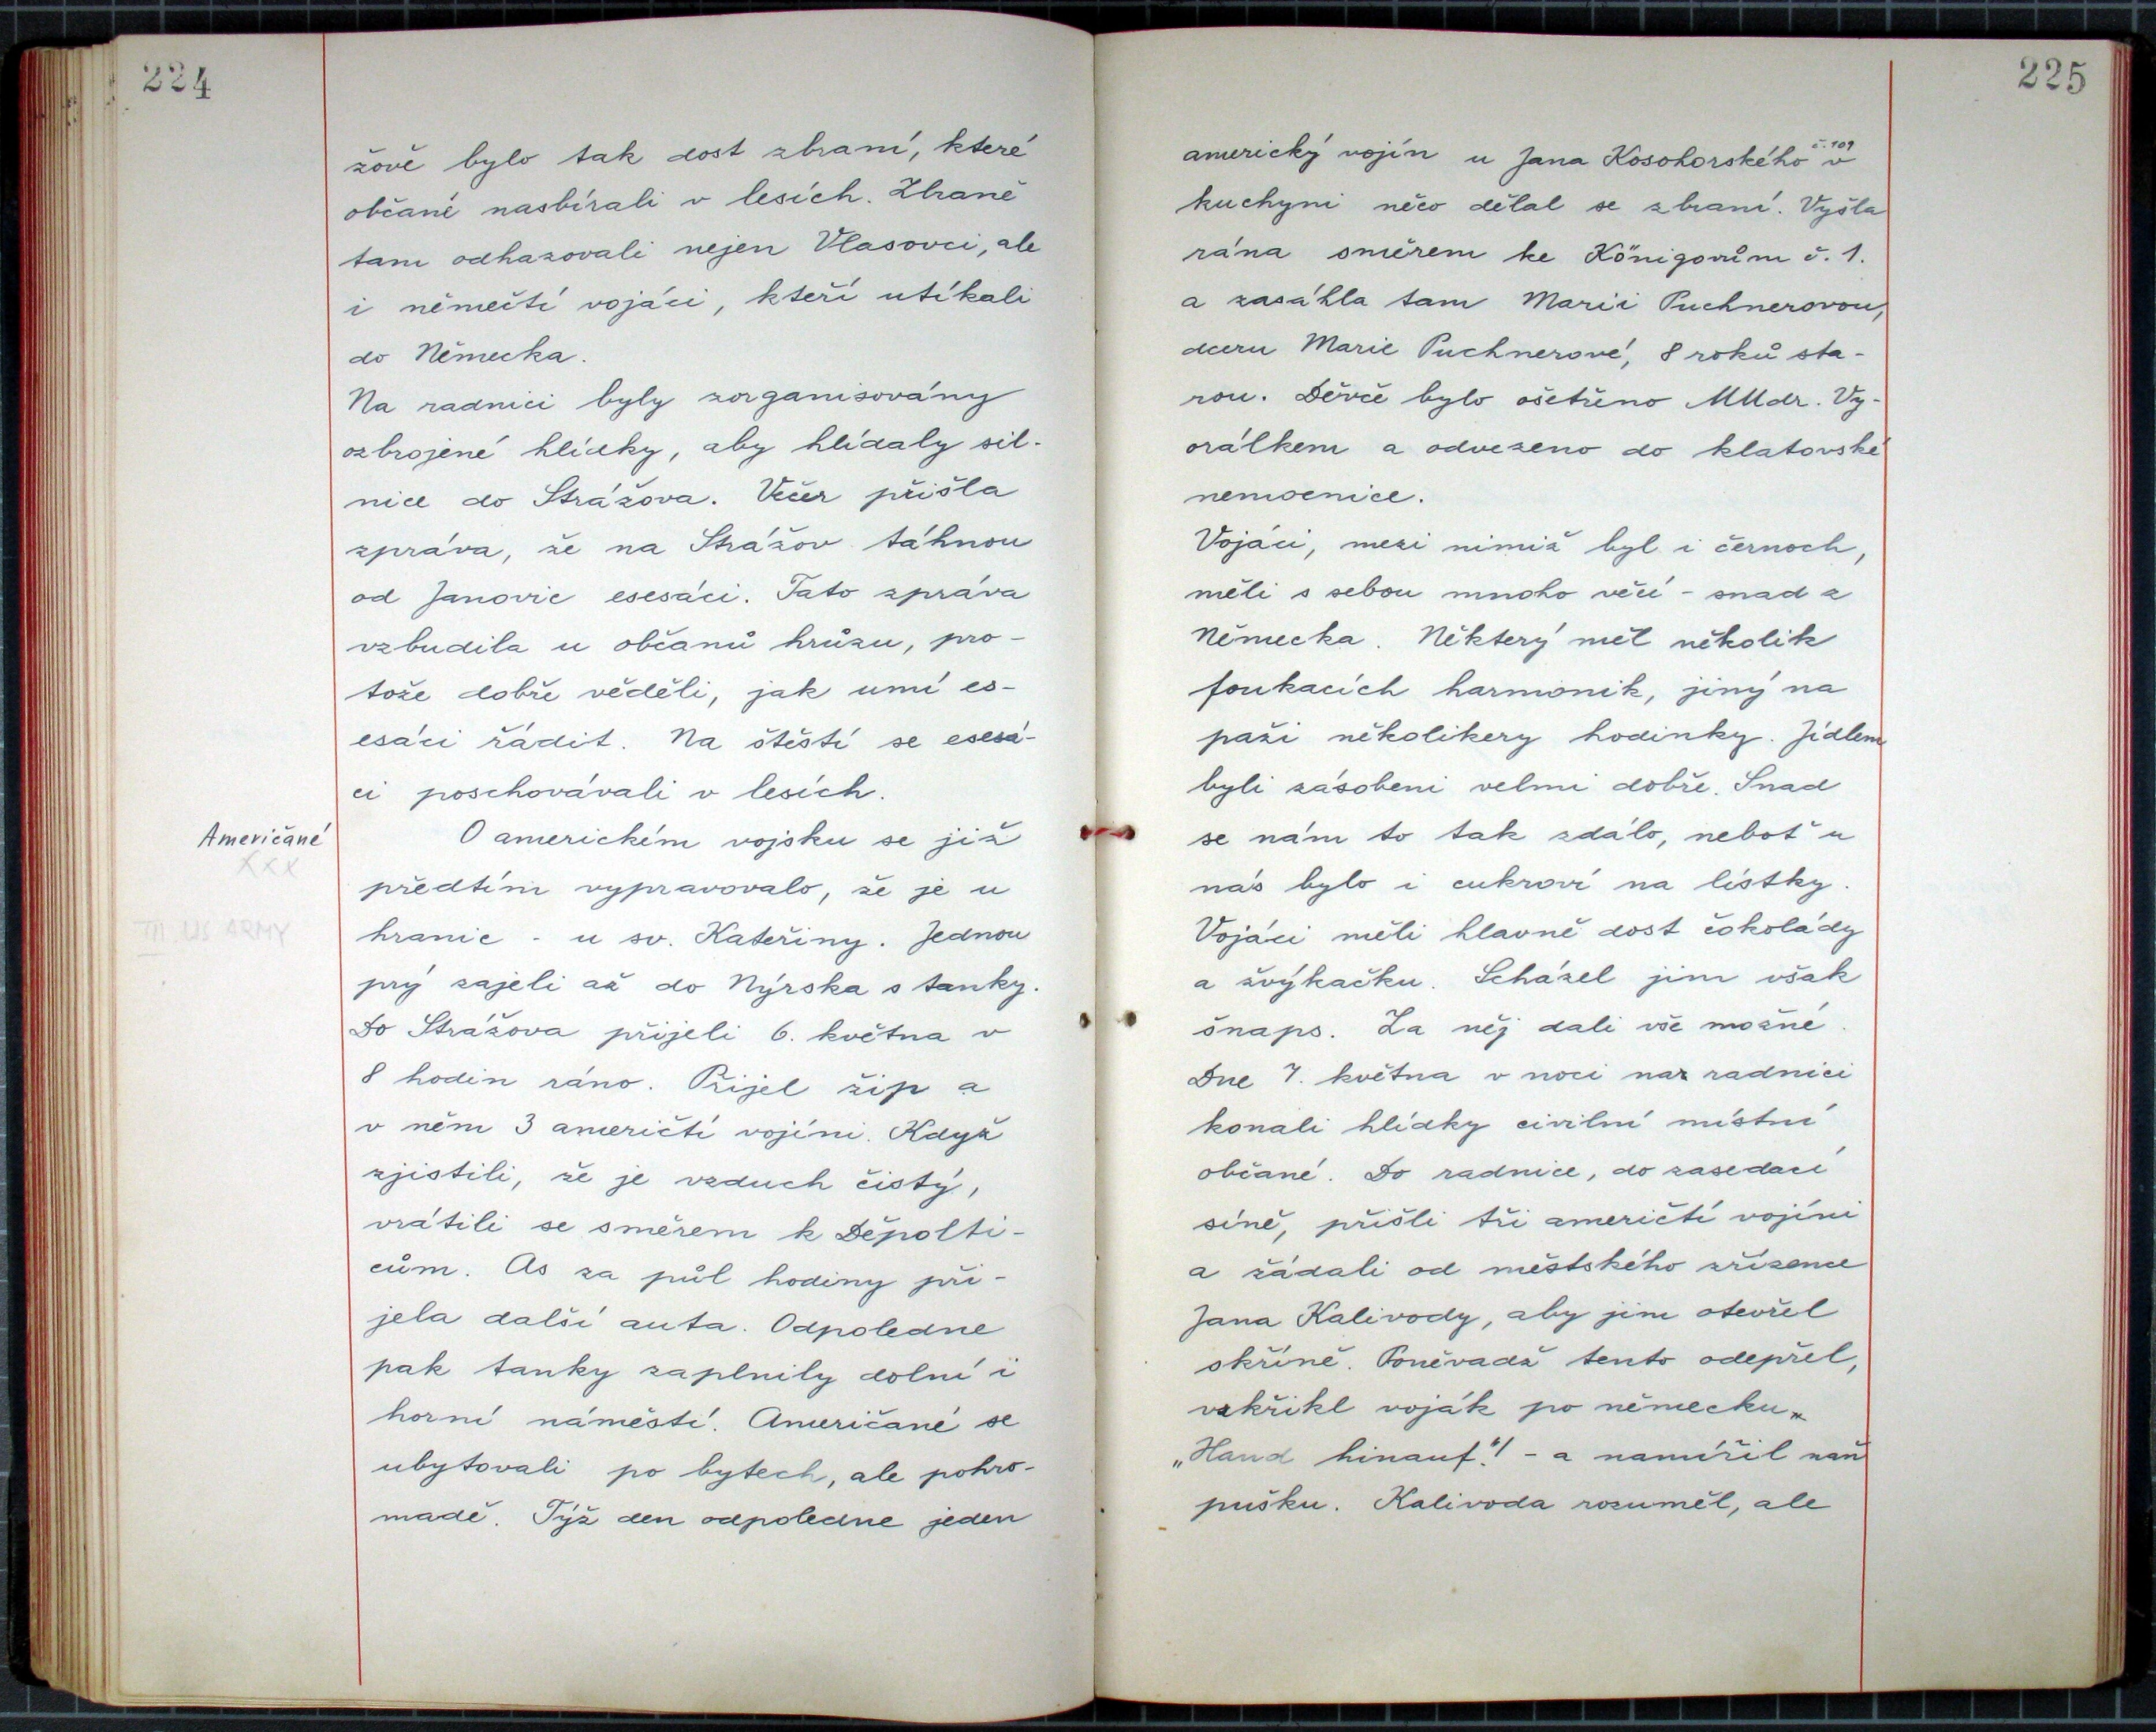 224
žově bylo tak dost zbraní, které
občané nasbírali v lesích. Zbraně
tam odhazovali nejen Vlasovci, ale
i němečtí vojáci, kteří utíkali
do Německa.
Na radnici byly zorganisovány
ozbrojené hlídky, aby hlídaly sil-
nice do Strážova. Večer přišla
zpráva, že na Strážov táhnou
od Janovic esesáci. Tato zpráva
vzbudila u občanů hrůzu, pro-
tože dobře věděli, jak umí es-
esáci řádit. Na štěstí se esesá-
ci poschovávali v lesích.
Američané
XXX
III US ARMY
O americkém vojsku se již
předtím vypravovalo, že je u
hranic - u sv. Kateřiny. Jednou
prý zajeli až do Nýrska s tanky.
Do Strážova přijeli 6. května v
8 hodin ráno. Přijel žip a
v něm 3 američtí vojíni. Když
zjistili, že je vzduch čistý,
vrátili se směrem k Děpolti-
cům. As za půl hodiny při-
jela další auta. Odpoledne
pak tanky zaplnily dolní i
horní náměstí. Američané se
ubytovali po bytech, ale pohro-
madě. Týž den odpoledne jeden
225
americký vojín u Jana Kosohorského č. 109 v
kuchyni něco dělal se zbraní. Vyšla
rána směrem ke Königovům č. 1.
a zasáhla tam Marii Puchnerovou,
dceru Marie Puchnerové, 8 roků sta-
rou. Děvče bylo ošetřeno MUdr. Vy-
orálkem a odvezeno do klatovské
nemocnice.
Vojáci, mezi nimiž byl i černoch,
měli s sebou mnoho věcí - snad z
Německa. Některý měl několik
foukacích harmonik, jiný na
paži několikery hodinky. Jídlem
byli zásobeni velmi dobře. Snad
se nám to tak zdálo, neboť u
nás bylo i cukroví na lístky.
Vojáci měli hlavně dost čokolády
a žvýkačku. Scházel jim však
šnaps. Za něj dali vše možné.
Dne 7. května v noci na radnici
konali hlídky civilní místní
občané. Do radnice, do zasedací
síně, přišli tři američtí vojíni
a žádali od městského zřízence
Jana Kalivody, aby jim otevřel
skříně. Poněvadž tento odepřel,
vzkřikl voják po německu
„Hand hinauf."! - a namířil naň
pušku. Kalivoda rozuměl, ale